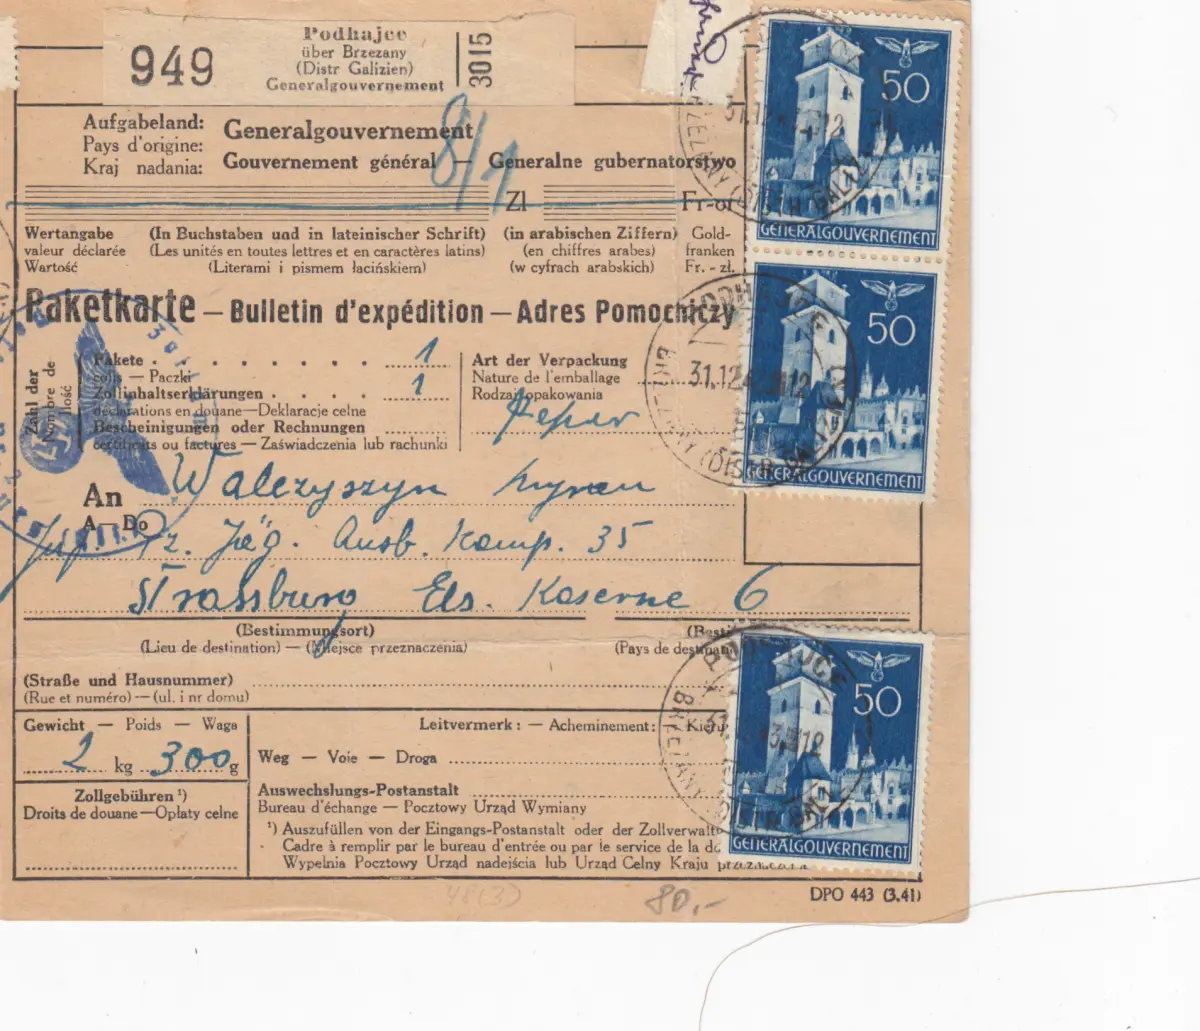 949
Podhajce
über Brzezany
(Distr Galizien)
Generalgouvernement
3015
8/1
Aufgabeland:
Pays d'origine:
Kraj nadania:
Generalgouvernement
Gouvernement général — Generalne gubernatorstwo
Zł
Fr-or
Wertangabe
valeur déclarée
Wartość
(In Buchstaben und in lateinischer Schrift)
(Les unités en toutes lettres et en caractères latins)
(Literami i pismem łacińskiem)
(in arabischen Ziffern)
(en chiffres arabes)
(w cyfrach arabskich)
Gold-
franken
Fr. - zł.
Paketkarte — Bulletin d'expédition — Adres Pomocniczy
Zahl der
Nombre de
Ilość
Pakete 1
colis — Paczki
Zollinhaltserklärungen 1
déclarations en douane—Deklaracje celne
Bescheinigungen oder Rechnungen
certificats ou factures — Zaświadczenia lub rachunki
Art der Verpackung
Nature de l'emballage
Rodzaj opakowania
An
A — Do
Walczyszyn
Jäg. Ausb. Komp. 35
Strassburg Els. Kaserne 6
(Bestimmungsort)
(Lieu de destination) — (Miejsce przeznaczenia)
(Pays de destinati
(Straße und Hausnummer)
(Rue et numéro) — (ul. i nr domu)
Gewicht — Poids — Waga
2 kg 300 g
Zollgebühren ¹)
Droits de douane—Opłaty celne
Leitvermerk: — Acheminement: — Kieru
Weg — Voie — Droga
Auswechslungs-Postanstalt
Bureau d'échange — Pocztowy Urząd Wymiany
¹) Auszufüllen von der Eingangs-Postanstalt oder der Zollverwalt
Cadre à remplir par le bureau d'entrée ou par le service de la do
Wypełnia Pocztowy Urząd nadejścia lub Urząd Celny Kraju przeznaczenia
DPO 443 (3.41)
48(3)
80,-
50
GENERALGOUVERNEMENT
50
GENERALGOUVERNEMENT
PODHAJCE
31.12.4
12
BRZEZANY (DISTR. GALIZ
50
GENERALGOUVERNEMENT